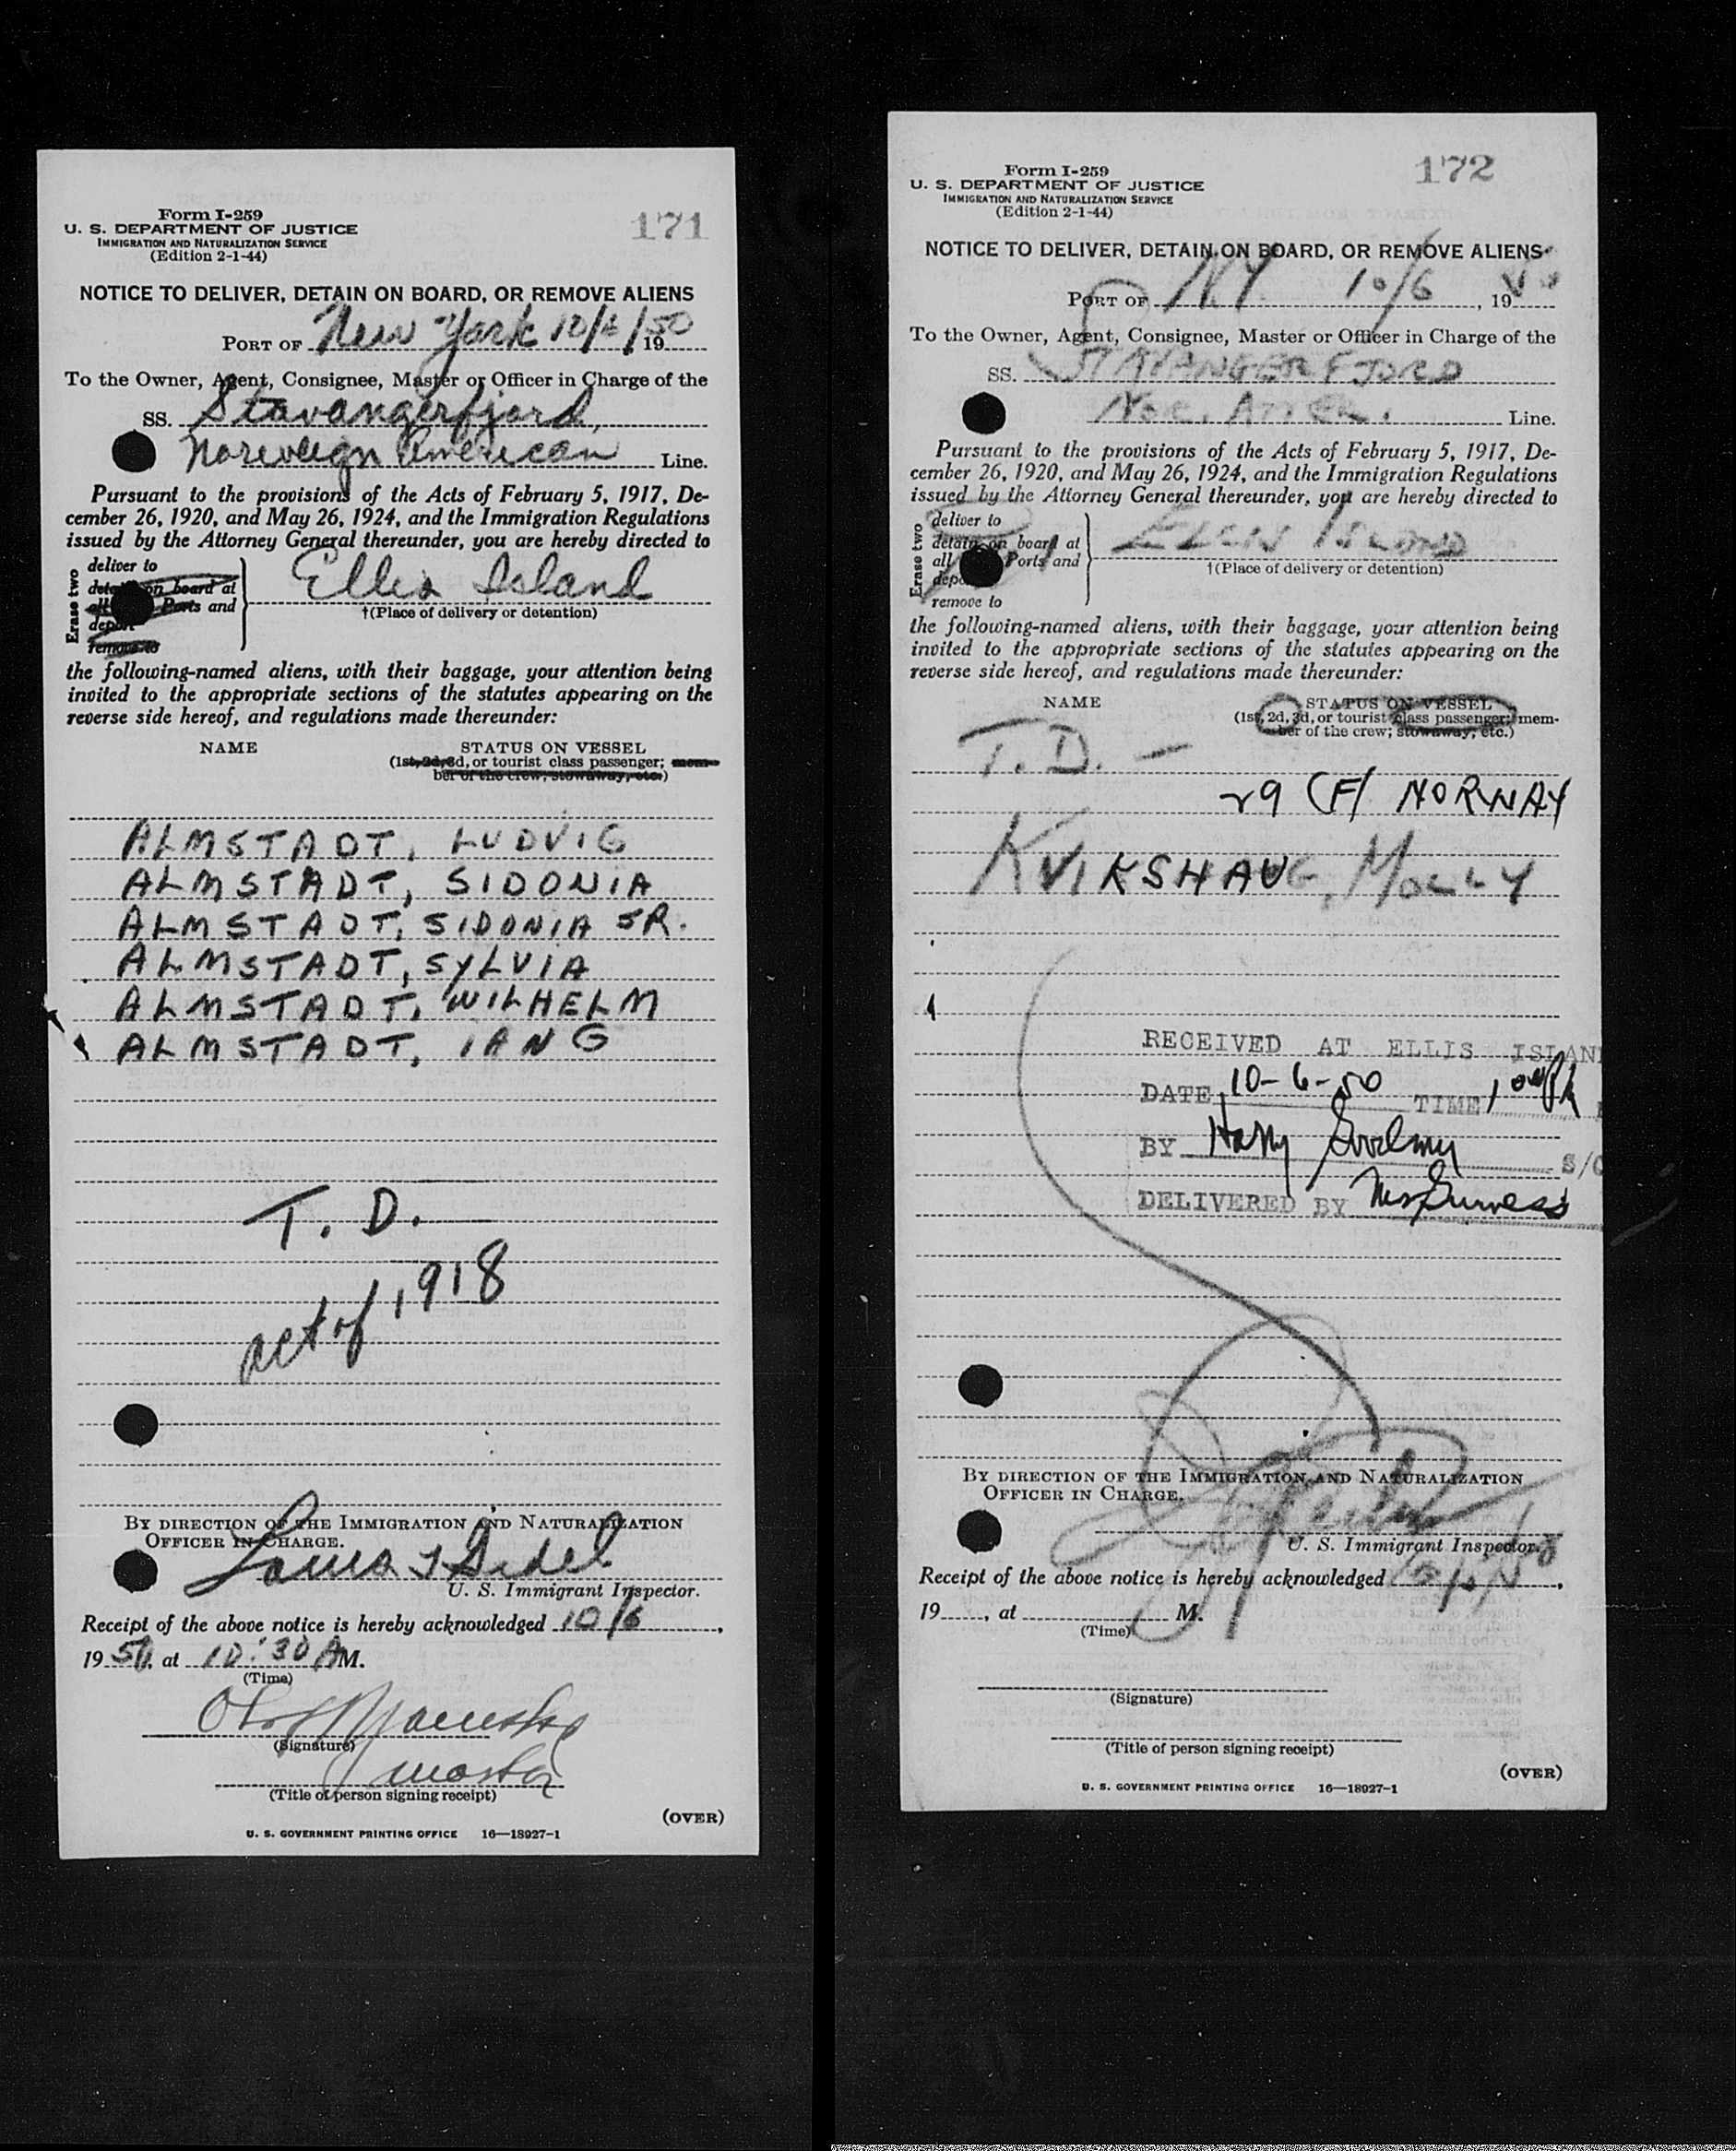 171
Form I-259
U. S. DEPARTMENT OF JUSTICE
IMMIGRATION AND NATURALIZATION SERVICE
(Edition 2-1-44)
NOTICE TO DELIVER, DETAIN ON BOARD, OR REMOVE ALIENS
PORT OF New York 10/6/50 19
To the Owner, Agent, Consignee, Master or Officer in Charge of the
SS. Stavangerfjord,
Norweign American Line.
Pursuant to the provisions of the Acts of February 5, 1917, De-
cember 26, 1920, and May 26, 1924, and the Immigration Regulations
issued by the Attorney General thereunder, you are hereby directed to
Erase two
deliver to
detain on board at
all Ports and
deport
remove to
Ellis Island
†(Place of delivery or detention)
the following-named aliens, with their baggage, your attention being
invited to the appropriate sections of the statutes appearing on the
reverse side hereof, and regulations made thereunder:
NAME STATUS ON VESSEL
(1st, 2d, 3d, or tourist class passenger; mem-
ber of the crew; stowaway, etc.)
ALMSTADT, LUDVIG
ALMSTADT, SIDONIA
ALMSTADT, SIDONIA JR.
ALMSTADT, SYLVIA
ALMSTADT, WILHELM
ALMSTADT, IANG
T. D.
act of 1918
BY DIRECTION OF THE IMMIGRATION AND NATURALIZATION
OFFICER IN CHARGE.
Louis
U. S. Immigrant Inspector.
Receipt of the above notice is hereby acknowledged 10/6,
1950, at 10:30 AM.
(Time)
(Signature)
master
(Title of person signing receipt)
(OVER)
U. S. GOVERNMENT PRINTING OFFICE 16—18927-1
172
Form I-259
U. S. DEPARTMENT OF JUSTICE
IMMIGRATION AND NATURALIZATION SERVICE
(Edition 2-1-44)
NOTICE TO DELIVER, DETAIN ON BOARD, OR REMOVE ALIENS
PORT OF N.Y. 10/6, 1950
To the Owner, Agent, Consignee, Master or Officer in Charge of the
SS. STAVANGERFJORD
NOR. AMER. Line.
Pursuant to the provisions of the Acts of February 5, 1917, De-
cember 26, 1920, and May 26, 1924, and the Immigration Regulations
issued by the Attorney General thereunder, you are hereby directed to
Erase two
deliver to
detain on board at
all Ports and
deport
remove to
ELLIS ISLAND
†(Place of delivery or detention)
the following-named aliens, with their baggage, your attention being
invited to the appropriate sections of the statutes appearing on the
reverse side hereof, and regulations made thereunder:
NAME STATUS ON VESSEL
(1st, 2d, 3d, or tourist class passenger; mem-
ber of the crew; stowaway, etc.)
T. D. —
29 (F) NORWAY
KVIKSHAUG, MOLLY
RECEIVED AT ELLIS ISLAN
DATE 10-6-50 TIME 1
BY Harry S/
DELIVERED BY
BY DIRECTION OF THE IMMIGRATION AND NATURALIZATION
OFFICER IN CHARGE.
U. S. Immigrant Inspector.
Receipt of the above notice is hereby acknowledged 10/6/50,
19, at M.
(Time)
(Signature)
(Title of person signing receipt)
(OVER)
U. S. GOVERNMENT PRINTING OFFICE 16—18927-1